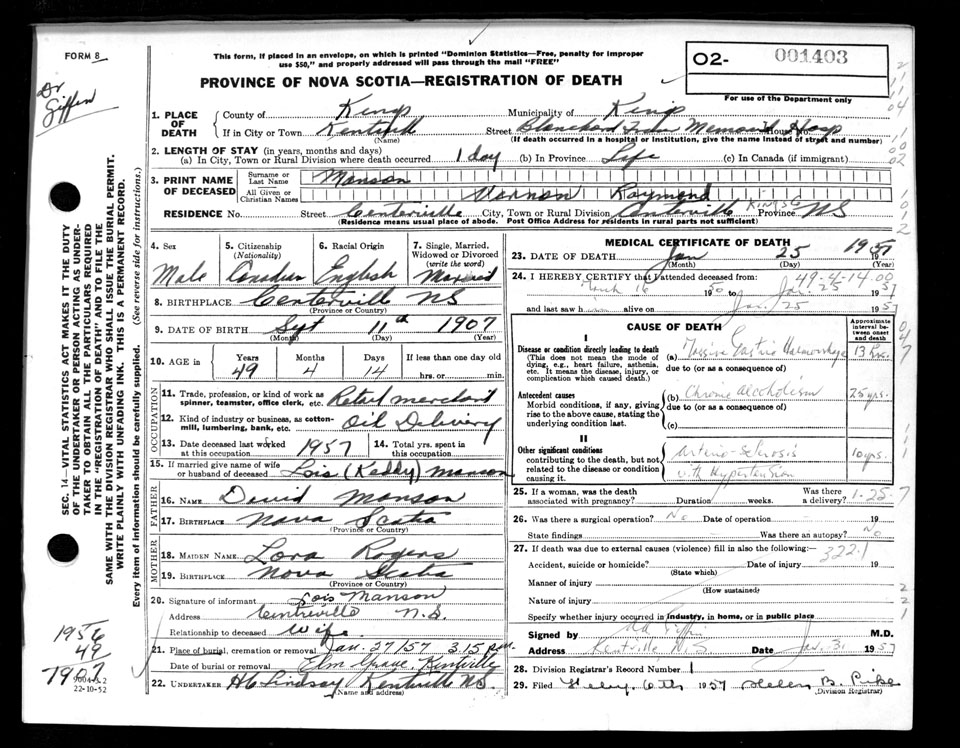 FORM 8
Dr Giffin
This form, if placed in an envelope, on which is printed "Dominion Statistics—Free, penalty for improper
use $50," and properly addressed will pass through the mail "FREE"
PROVINCE OF NOVA SCOTIA—REGISTRATION OF DEATH
02- 001403
For use of the Department only
1. PLACE OF DEATH County of Kings Municipality of Kings
If in City or Town Kentville (Name) Street Blanchard Memorial Hosp House No.
(If death occurred in a hospital or institution, give the name instead of street and number)
2. LENGTH OF STAY (in years, months and days)
(a) In City, Town or Rural Division where death occurred 1 day (b) In Province Life (c) In Canada (if immigrant)
3. PRINT NAME OF DECEASED Surname or Last Name Manson
All Given or Christian Names Vernon Raymond
RESIDENCE No. Street Centerville City, Town or Rural Division Centreville Kings Co Province NS
(Residence means usual place of abode. Post Office Address for residents in rural parts not sufficient)
4. Sex Male
5. Citizenship (Nationality)
6. Racial Origin English
7. Single, Married, Widowed or Divorced (write the word) Married
8. BIRTHPLACE Centerville NS
(Province or Country)
9. DATE OF BIRTH Sept 11th 1907
(Month) (Day) (Year)
10. AGE in Years 49 Months 4 Days 14 If less than one day old hrs. or min.
OCCUPATION
11. Trade, profession, or kind of work as spinner, teamster, office clerk, etc. Retail merchant
12. Kind of industry or business, as cotton-mill, lumbering, bank, etc. Oil Delivery
13. Date deceased last worked at this occupation 1957 14. Total yrs. spent in this occupation
15. If married give name of wife or husband of deceased Lois (Keddy) Manson
FATHER
16. NAME David Manson
17. BIRTHPLACE Nova Scotia
(Province or Country)
MOTHER
18. MAIDEN NAME Lora Rogers
19. BIRTHPLACE Nova Scotia
(Province or Country)
20. Signature of informant Lois Manson
Address Centreville N.S.
Relationship to deceased Wife
21. Place of burial, cremation or removal Jan. 27/57 3.15 p.m.
Date of burial or removal Elm Grove, Kentville
22. UNDERTAKER H C Lindsay Kentville NS.
(Name and address)
MEDICAL CERTIFICATE OF DEATH
23. DATE OF DEATH Jan 25 1957
(Month) (Day) (Year)
24. I HEREBY CERTIFY that I attended deceased from: 49-4-14.00
March 16 1950 to Jan. 25 1957
and last saw h alive on Jan. 25 1957
CAUSE OF DEATH
Approximate interval between onset and death
I
Disease or condition directly leading to death
(This does not mean the mode of dying, e.g., heart failure, asthenia, etc. It means the disease, injury, or complication which caused death.)
(a) Massive Gastric Haemorrhage 13 hrs.
due to (or as a consequence of)
Antecedent causes
Morbid conditions, if any, giving rise to the above cause, stating the underlying condition last
(b) Chronic alcoholism 25 yrs.
due to (or as a consequence of)
(c)
II
Other significant conditions
contributing to the death, but not related to the disease or condition causing it.
Arterio-Sclerosis 10 yrs.
with Hypertension
25. If a woman, was the death associated with pregnancy? Duration weeks. Was there a delivery? 1-25-7
26. Was there a surgical operation? No Date of operation 19
State findings Was there an autopsy? No
27. If death was due to external causes (violence) fill in also the following:— 322.1
Accident, suicide or homicide? Date of injury 19
(State which)
Manner of injury
(How sustained)
Nature of injury
Specify whether injury occurred in industry, in home, or in public place
Signed by Giffin M.D.
Address Kentville, N.S. Date Jan. 31 1957
28. Division Registrar's Record Number 1
29. Filed Feby. 6th 1957 Helen B. Pike
(Division Registrar)
SEC. 14—VITAL STATISTICS ACT MAKES IT THE DUTY
OF THE UNDERTAKER OR PERSON ACTING AS UNDERTAKER TO OBTAIN ALL THE PARTICULARS REQUIRED
IN THE "REGISTRATION OF DEATH" AND TO FILE THE
SAME WITH THE DIVISION REGISTRAR WHO SHALL ISSUE THE BURIAL PERMIT.
WRITE PLAINLY WITH UNFADING INK. THIS IS A PERMANENT RECORD.
Every item of information should be carefully supplied. (See reverse side for instructions.)
1956
49
1907
22-10-52